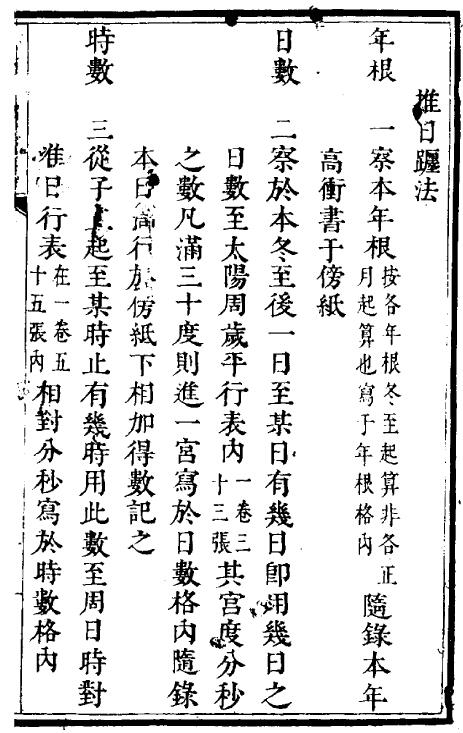 推日躔法
年根　一察本年根按各年根冬至起算非各正月起算也寫于年根格內隨錄本年
高衝書于傍紙
日數　二察於本冬至後一日至某日有幾日卽用幾日之
日數至太陽周歲平行表內一卷三十三張其宮度分秒
之數凡滿三十度則進一宮寫於日數格內隨錄
本日行於傍紙下相加得數記之
時數　三從子正起至某時止有幾時用此數至周日時對
日行表在一卷五十五張內相對分秒寫於時數格內